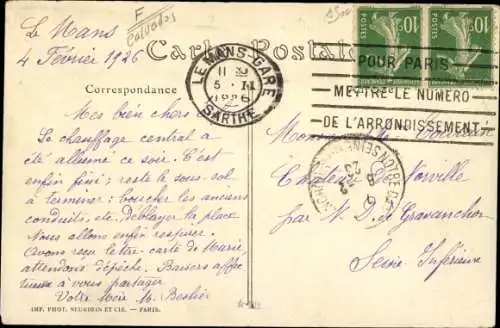 Le Mans
4 Février 1926
F
Calvados
Carte Postale
LE MANS-GARE
11
5 - II
1926
SARTHE
10c
10c
POUR PARIS
METTRE LE NUMERO
DE L'ARRONDISSEMENT
Correspondance
Mes bien chers
Le chauffage central a
été allumé ce soir. C'est
enfin fini ; reste le sous-sol
à terminer : boucher les anciens
conduits, etc. Déblayer la place
Nous allons enfin respirer.
Avons reçu lettre-carte de Marie
attendons dépêche. Baisers affec
tueux à vous partager
Votre
Château de
par N. D. de Gravenchon
Seine Inférieure
IMP. PHOT. NEURDEIN ET CIE. — PARIS.